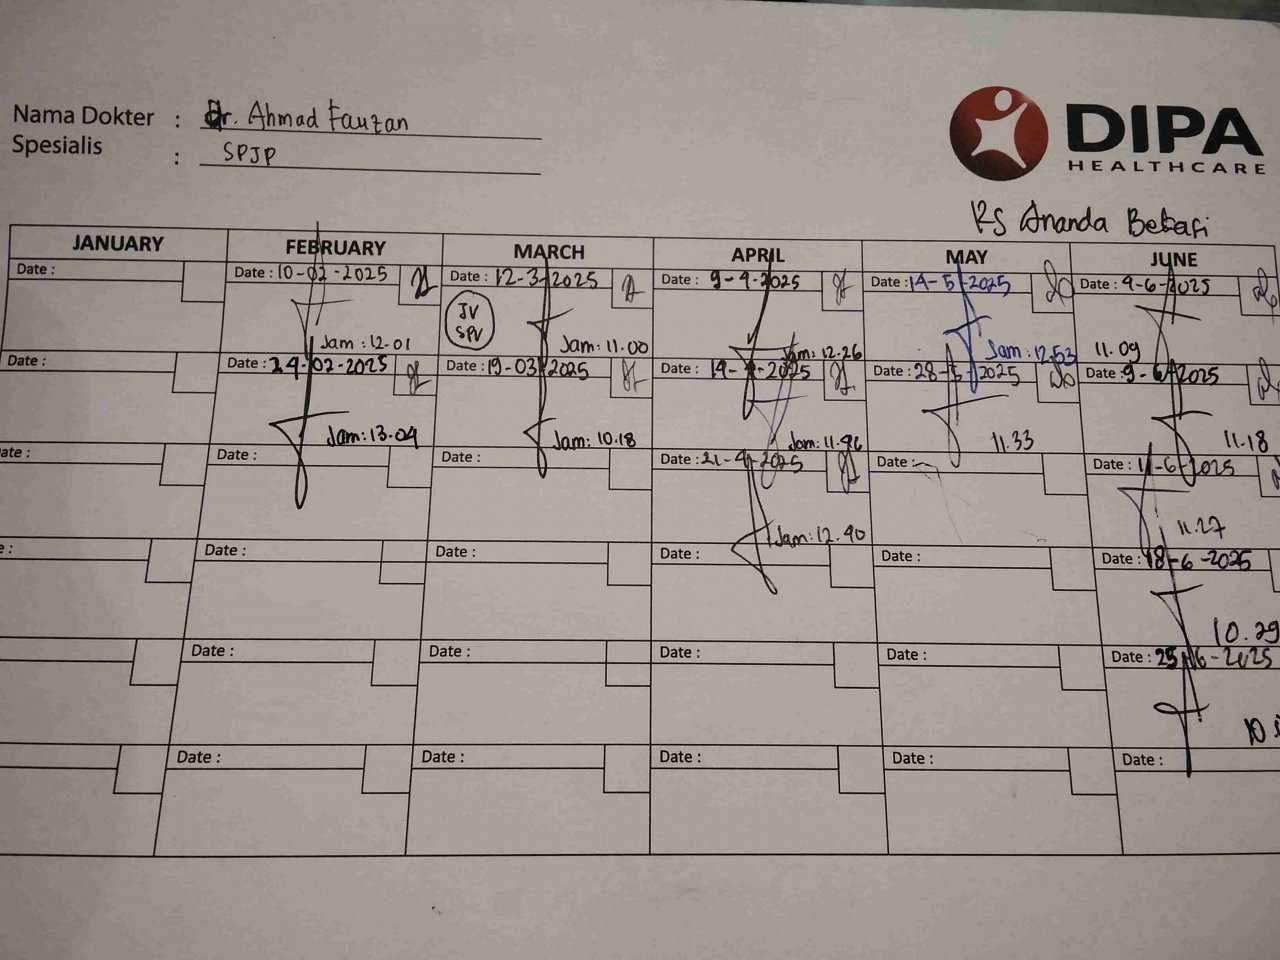 Nama Dokter : Dr. Ahmad Fauzan
Spesialis : SPJP
DIPA
HEALTHCARE
RS Ananda Bekasi
JANUARY FEBRUARY MARCH APRIL MAY JUNE
Date : Date : 10-02-2025 Date : 12-3-2025 Date : 9-4-2025 Date : 14-5-2025 Date : 4-6-2025
JV
SPV
Jam : 12.01 Jam : 11.00 Jam: 12.26 Jam : 12.53 11.09
Date : Date : 24-02-2025 Date : 19-03-2025 Date : 14-4-2025 Date : 28-5-2025 Date : 9-6-2025
Jam: 13.04 Jam: 10.18 Jam: 11.46 11.33 11.18
ate : Date : Date : Date : 21-4-2025 Date : Date : 11-6-2025
Jam: 12.40 11.27
e : Date : Date : Date : Date : Date : 18-6-2025
10.29
Date : Date : Date : Date : Date : 25-6-2025
10
Date : Date : Date : Date : Date :